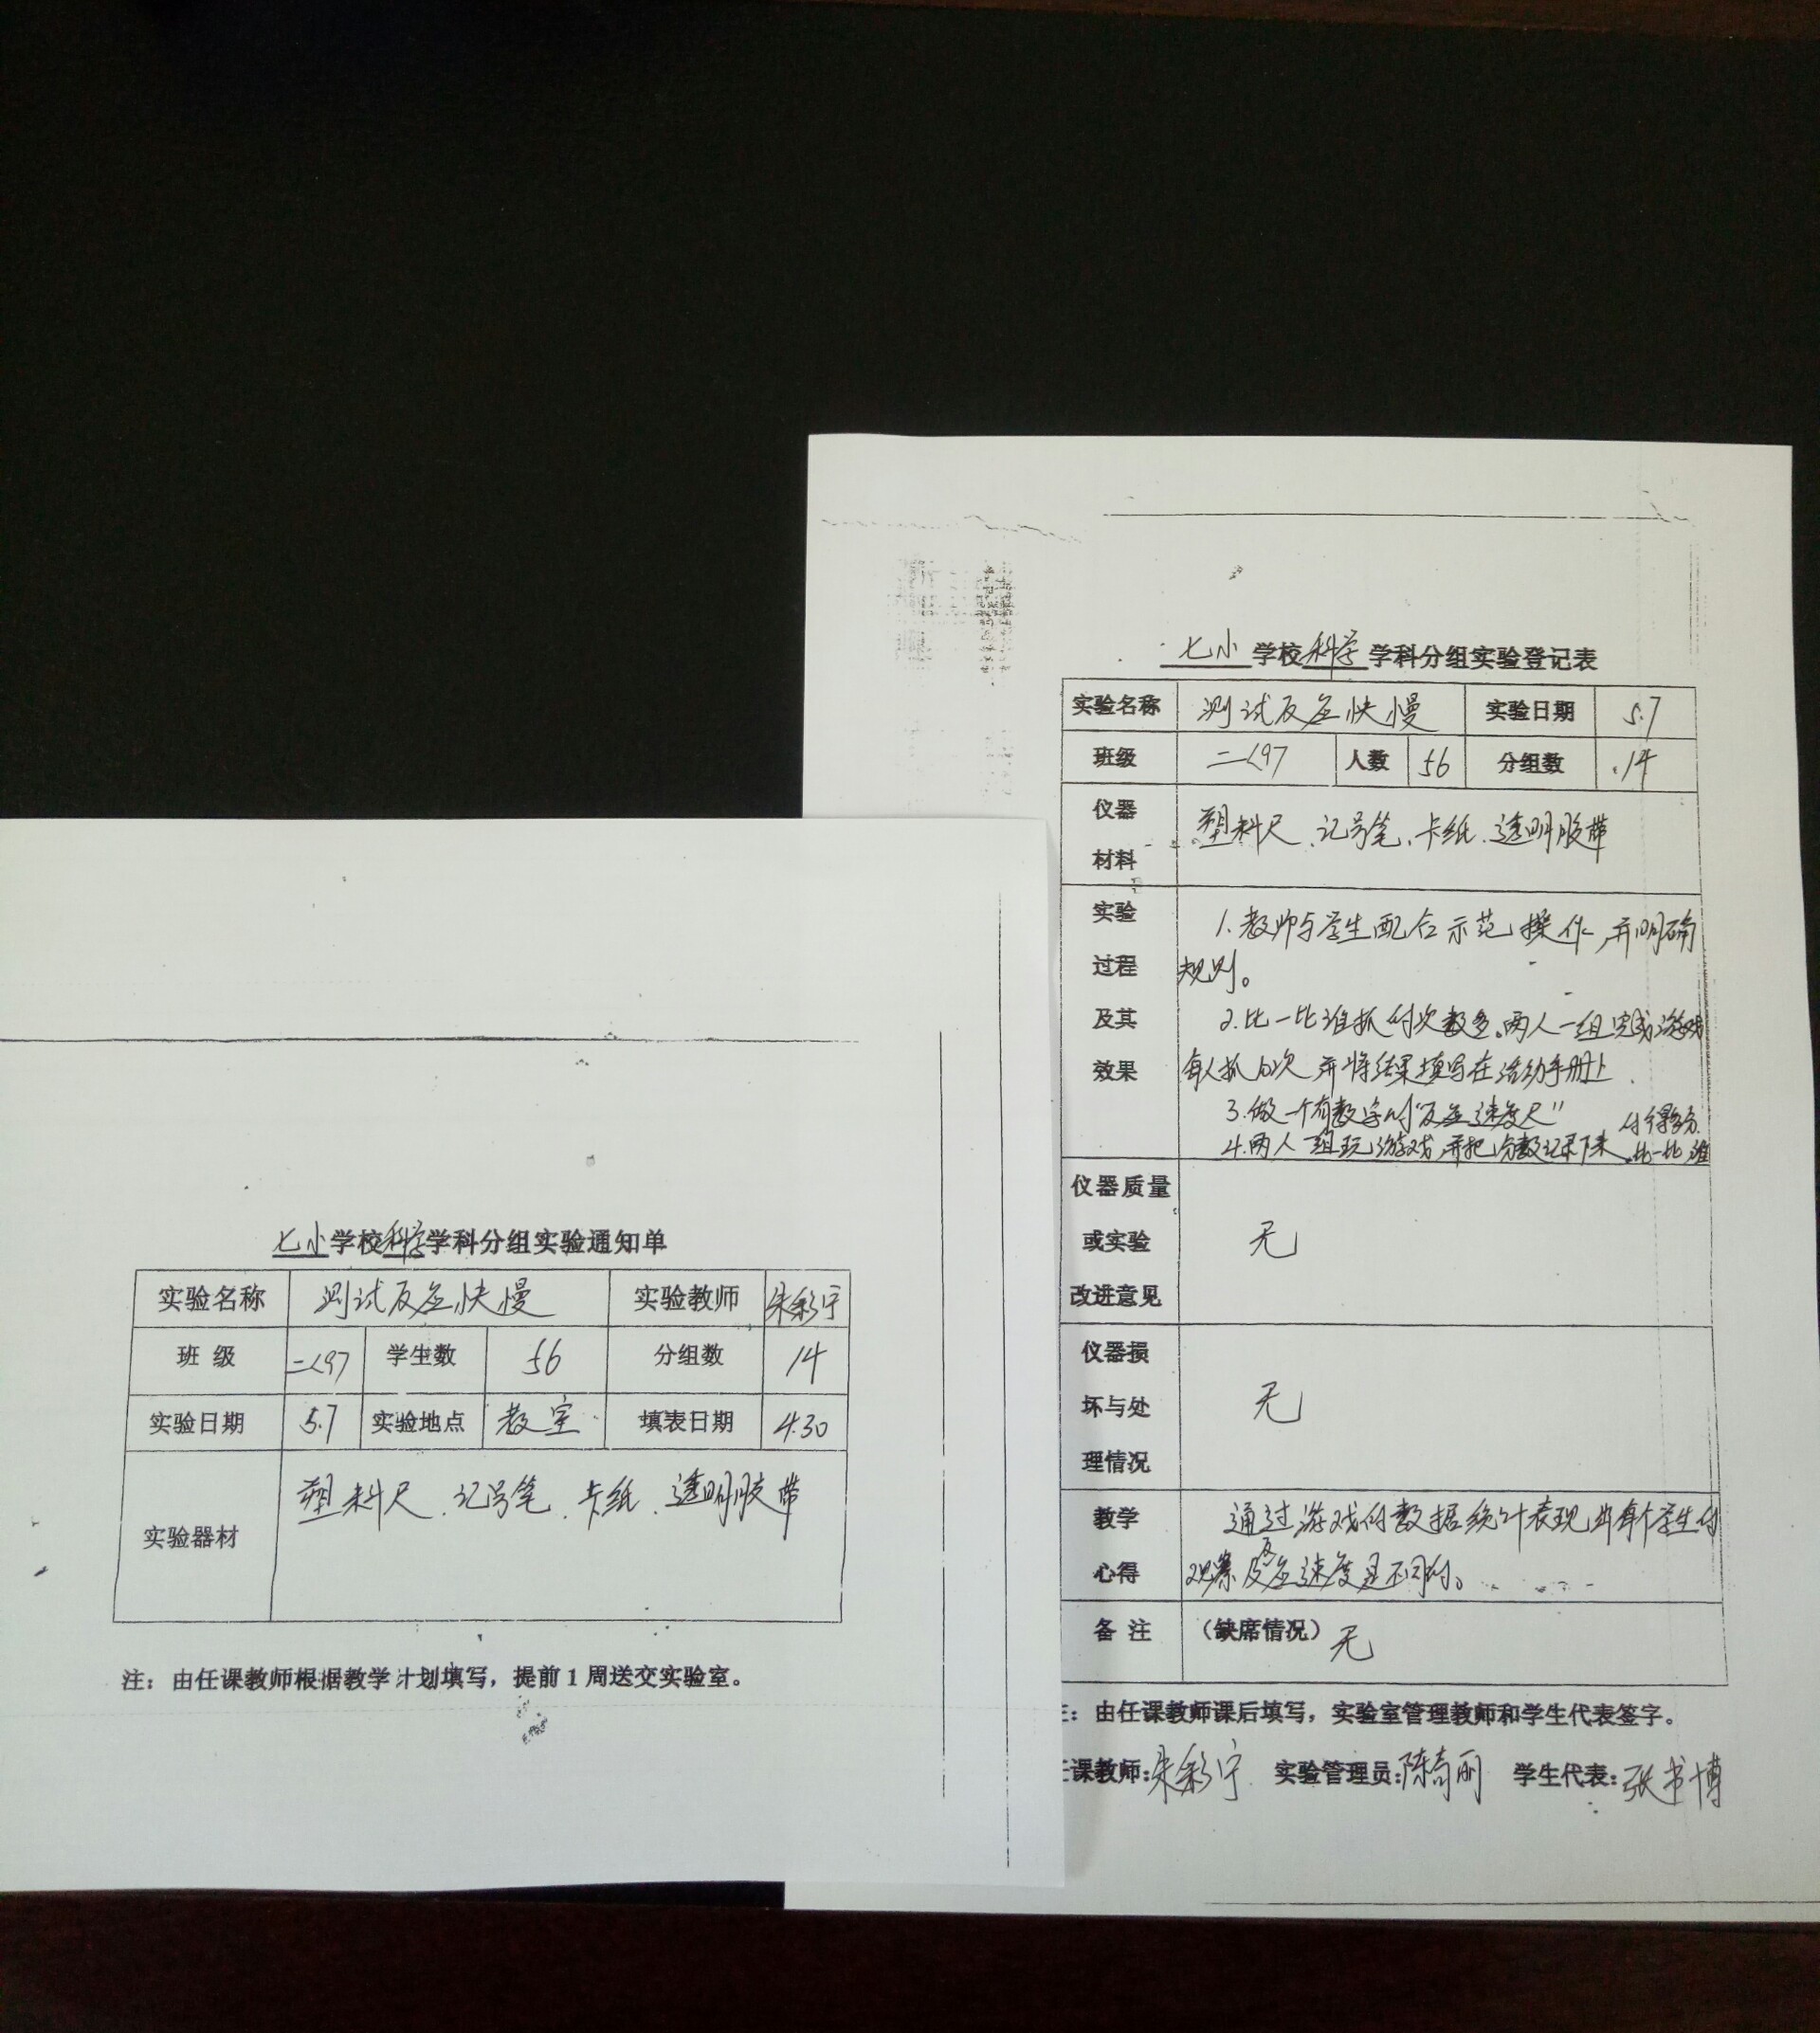 七小学校科学学科分组实验通知单
实验名称 测试反应快慢 实验教师 朱彩宁
班 级 二(9) 学生数 56 分组数 14
实验日期 5.7 实验地点 教室 填表日期 4.30
实验器材 塑料尺、记号笔、卡纸、透明胶带
注：由任课教师根据教学计划填写，提前1周送交实验室。
七小学校科学学科分组实验登记表
实验名称 测试反应快慢 实验日期 5.7
班级 二(9) 人数 56 分组数 14
仪器材料 塑料尺、记号笔、卡纸、透明胶带
实验过程及其效果
1.教师与学生配合示范操作,并明确
规则。
2.比一比谁抓的次数多。两人一组完成游戏
每人抓10次,并将结果填写在活动手册上.
3.做一个有数字的“反应速度尺”
4.两人一组玩游戏,并把分数记录下来,比一比谁
的得分多.
仪器质量或实验改进意见 无
仪器损坏与处理情况 无
教学心得
通过游戏的数据统计表现出每个学生的
观察反应速度是不同的。
备 注 （缺席情况）无
：由任课教师课后填写，实验室管理教师和学生代表签字。
课教师:朱彩宁 实验管理员:陈奇丽 学生代表:张书博